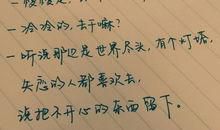 — 冷冷的，去干嘛？
— 听说那边是世界尽头，有个灯塔，
失恋的人都喜欢去，
说把不开心的东西留下。